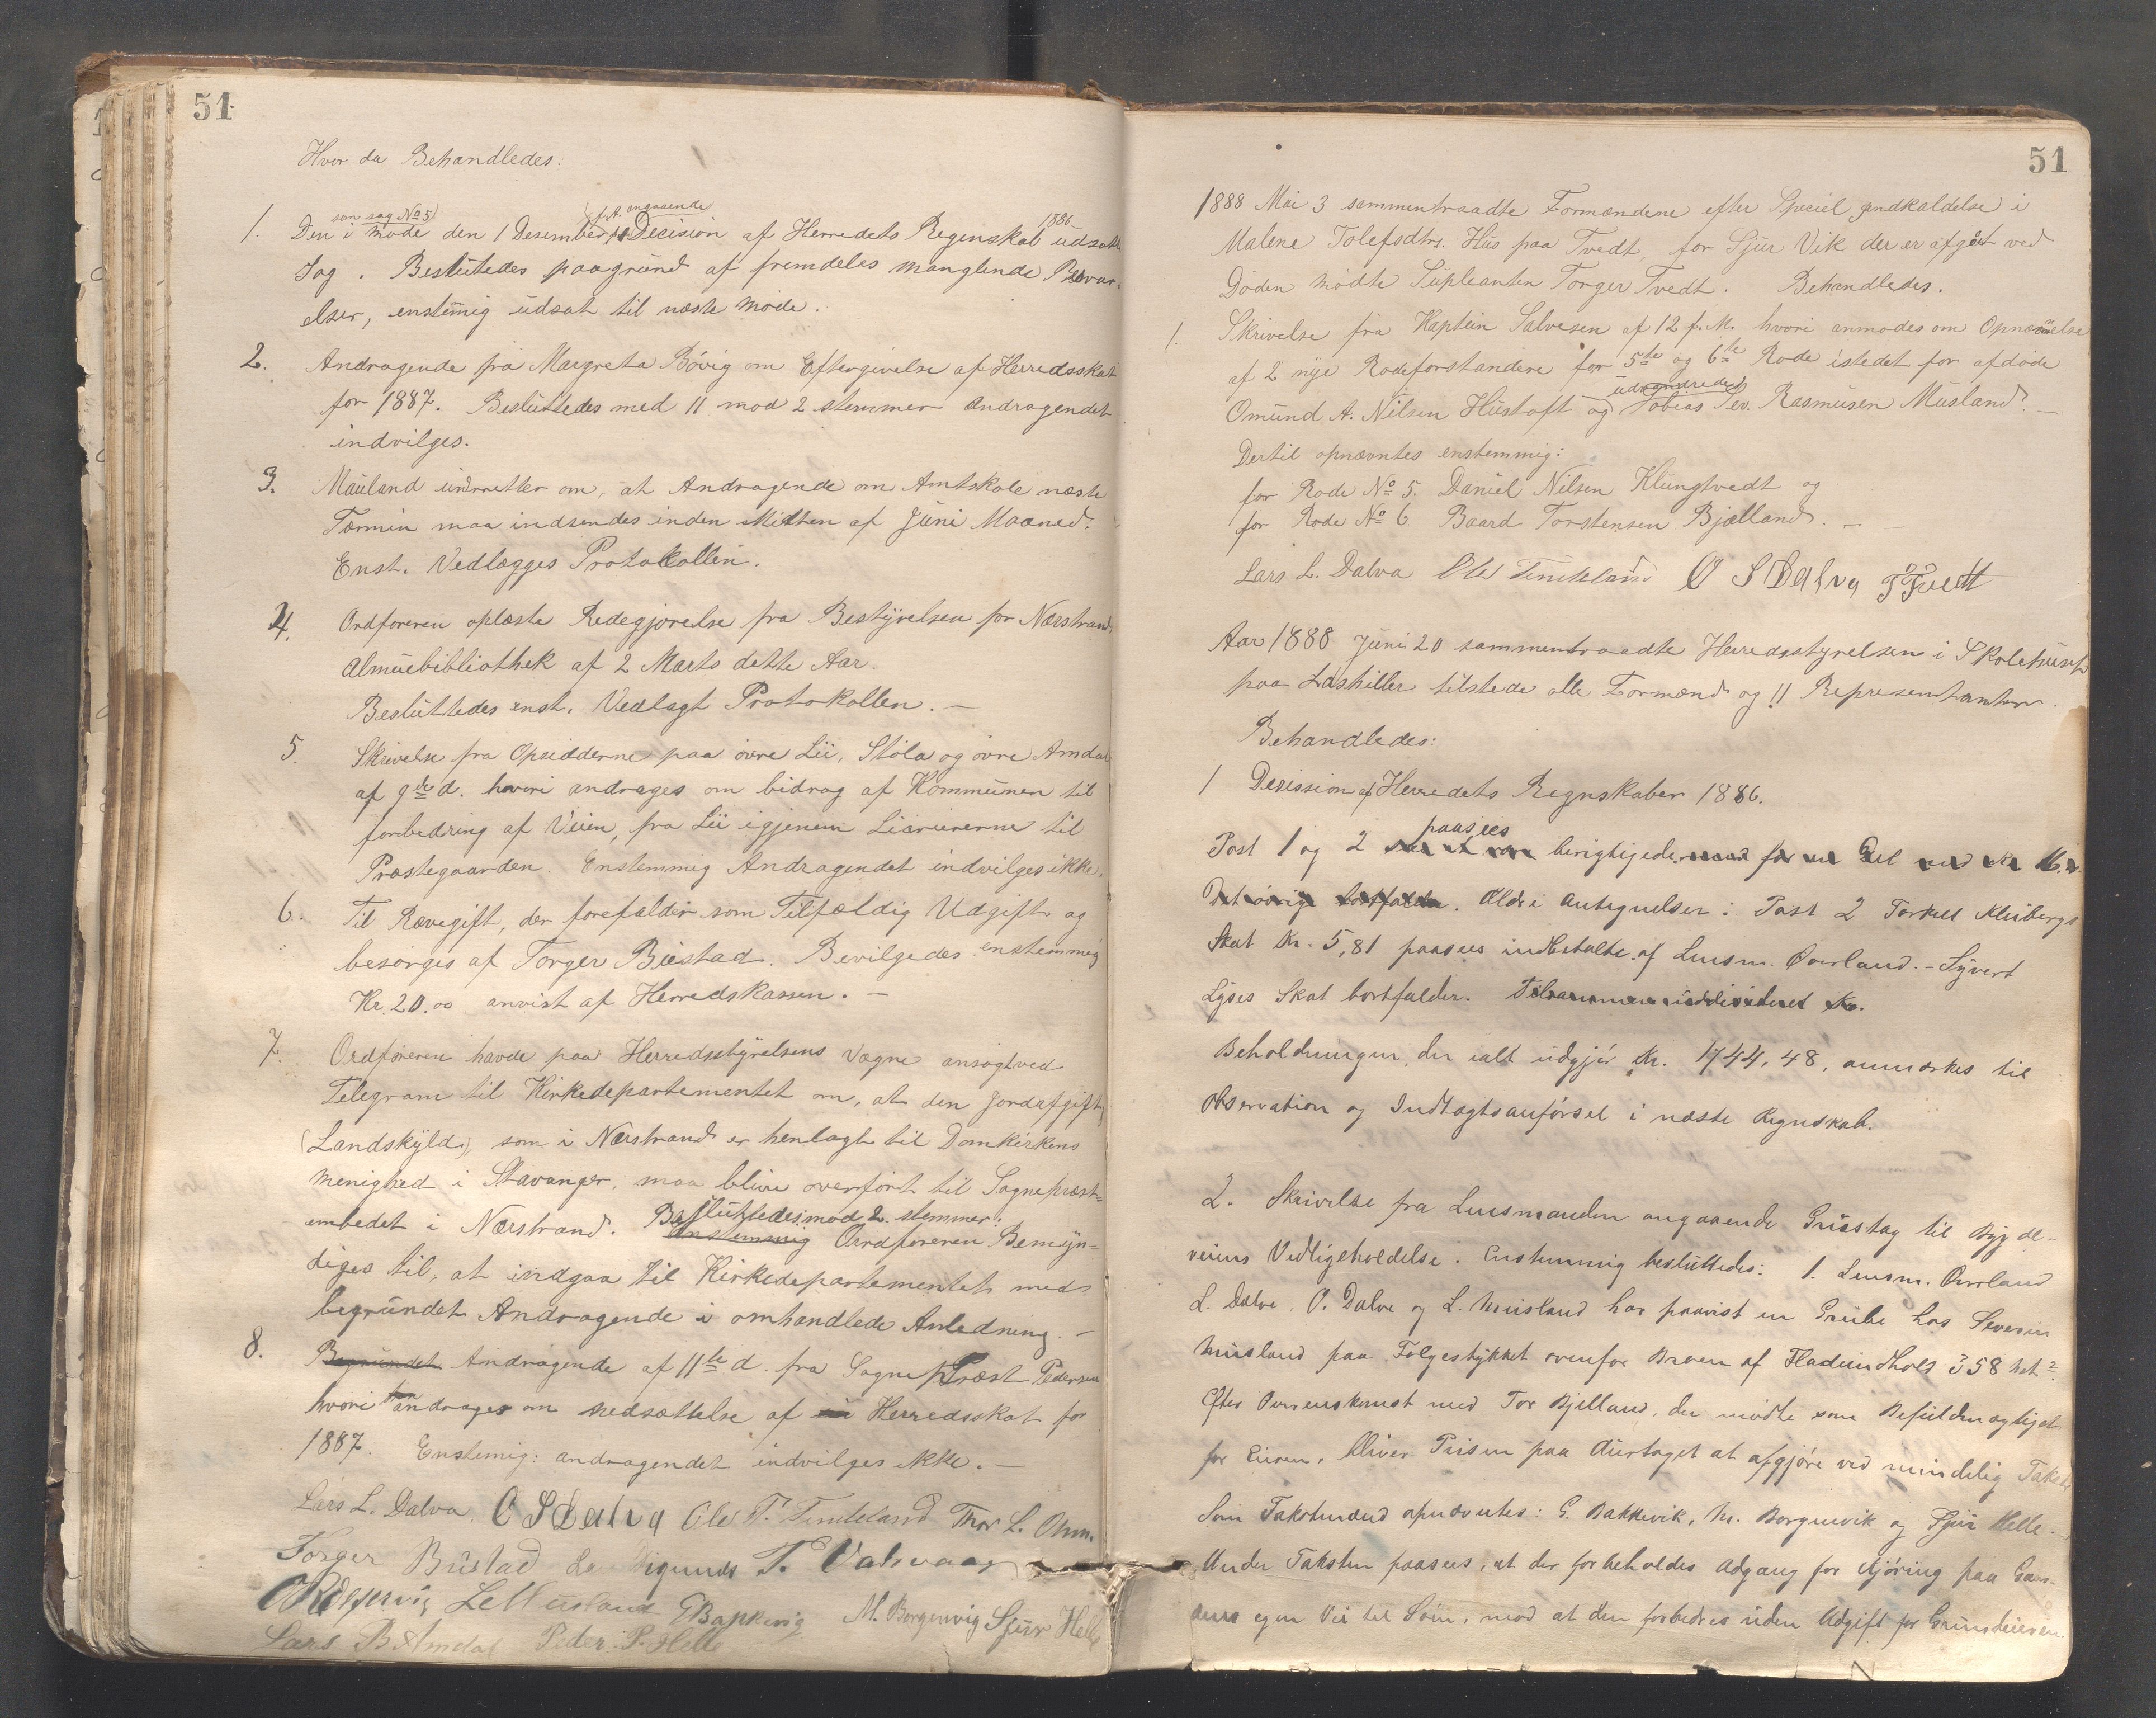 51
Hvor da Behandledes:
1. Den i Møde den 1 Desember f.A. angaaende Decision af Herredets Regnskab 1886 udsatte
som sag No 5
Sag. Besluttedes paagrund af fremdeles manglende Besvar-
elser, enstemig udsat til næste Møde.
2. Andragende fra Margreta Bövig om Eftergivelse af Herredsskat
for 1887. Besluttedes med 11 mod 2 stemmer Andragendet
indvilges.
3. Mauland underretter om, at Andragende om Amtskole næste
Termin maa indsendes inden Midten af Juni Maaned.
Enst. Vedlægges Protokollen.
4. Ordføreren oplæste Redegjørelse fra Bestyrelsen for Nærstrands
Almuebibliothek af 2 Marts dette Aar.
Besluttedes enst. Vedlagt Protokollen. —
5. Skrivelse fra Opsidderne paa övre Lii, Stöla og övre Amdal
af 9de d. hvori andrages om bidrag af Kommunen til
forbedring af Veien, fra Lii igjenem Liarurerne til
Præstegaarden. Enstemmig Andragendet indvilges ikke.
6. Til Rævegift, der forefalder som Tilfældig Udgift og
besørges af Torger Bustad. Bevilgedes enstemmig
Kr. 20.00 anvist af Herredskassen. —
7. Ordføreren havde paa Herredsstyrelsens Vægne ansøgt ved
Telegram til Kirkedepartementet om, at den Jordafgift
(Landskyld), som i Nærstrand er henlagt til Domkirkens
Menighed i Stavanger, maa blive overført til Sognepræst-
embedet i Nærstrand. Besluttedes mod 2 stemmer:
Enstemmig Ordføreren Bemyn-
diges til, at indgaa til Kirkedepartementet med
begrundet Andragende i omhandlede Anledning. —
8. Begrundet Andragende af 11te d. fra Sognepræst Pedersen
hvori han andrager om nedsættelse af Herredsskat for
1887. Enstemig: andragendet indvilges ikke. —
Lars L. Dalva. O S Dalva Ole T. Tindeland Thor L.
Torger Bustad T. Valsvaag
L. Musland G Bakkevig M. Borgenvig Sjur Helle
Lars B Amdal Peder P. Helle
51
1888 Mai 3 sammentraadte Formændene efter Speciel Indkaldelse i
Malene Tolefsdtrs. Hus paa Tvedt, for Sjur Vik der er afgået ved
Døden mødte Supleanten Torger Tvedt. Behandledes.
1. Skrivelse fra Kaptein Salvesen af 12 f.M. hvori anmodes om Opnævnelse
af 2 nye Rodeforstandere for 5te og 6te Rode istedet for afdøde
Omund A. Nilsen Hustoft og udvandrede Tobias Sev. Rasmusen Musland.
Dertil opnævntes enstemmig:
for Rode No 5. Daniel Nilsen Klungtvedt og
for Rode No 6 Baard Torstensen Bjælland. —
Lars L. Dalva Ole Tindeland O S Dalva T Tvedt
Aar 1888 Juni 20 sammentraadte Herredsstyrelsen i Skolehuset
paa Lashiller tilstede alle Formænd og 11 Representanter.
Behandledes:
1 Desission af Herredets Regnskaber 1886.
Post 1 og 2 paasees berigtigede
Det øvrige bortfalder. Ældre Antegnelser: Post 2 Torkel Kleibergs
Skat Kr. 5,81 paasees indbetalte af Lensm. Øverland. – Syvert
Lyses Skat bortfalder.
Beholdningen, der ialt udgjør Kr. 1744,48, anmærkes til
Observation og Indtægtsanførsel i næste Regnskab.
2. Skrivelse fra Lensmanden angaaende Grustag til Bygde-
veiens Vedligeholdelse. Enstemmig besluttedes: 1. Lensm. Øverland
L. Dalve, O. Dalve og L. Musland har paavist en Grube hos Severin
Musland paa Følgestykket ovenfor
Efter Overenskomst med Tor Bjelland, der mødte som Befuldmægtiget
for Eieren, bliver Prisen paa Aurtaget at afgjøre ved mindelig Takst.
Som Takstmænd opnævntes: G. Bakkevik, M. Borgenvik og Sjur Helle. —
Under Taksten paasees, at der forbeholdes Adgang for Kjøring paa Gaar-
dens egen Vei til Søen, mod at den forbedres uden Udgift for Grundeieren.